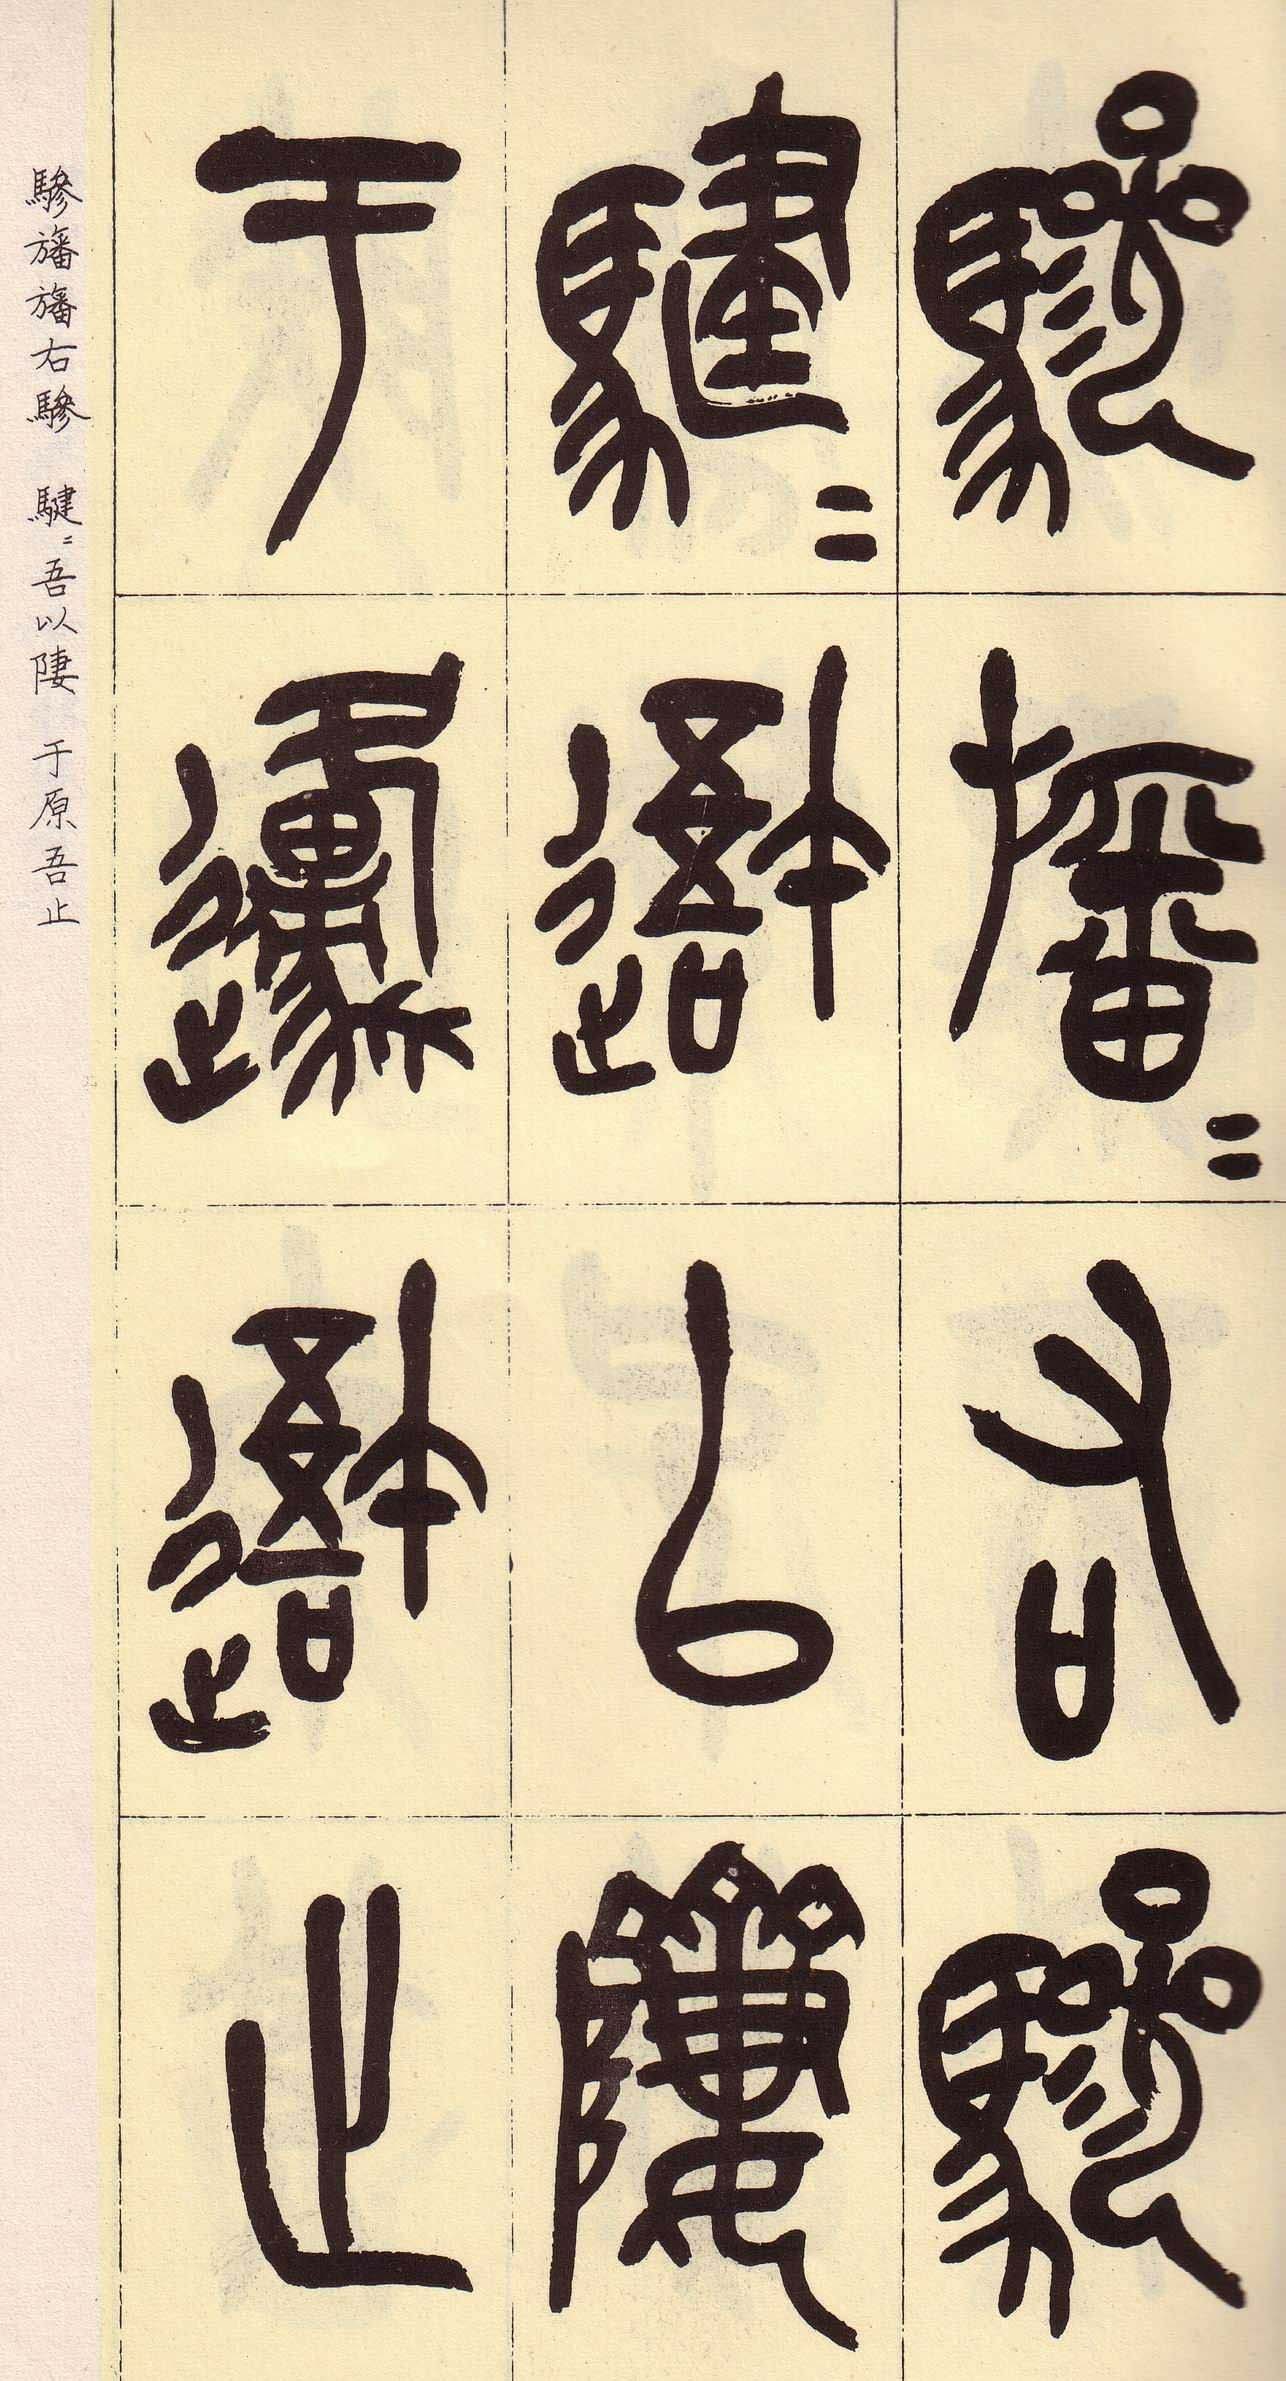 驂旛=右驂
騝=吾以隮
于邍吾止
驂旛旛右驂 騝=吾以 于原吾止